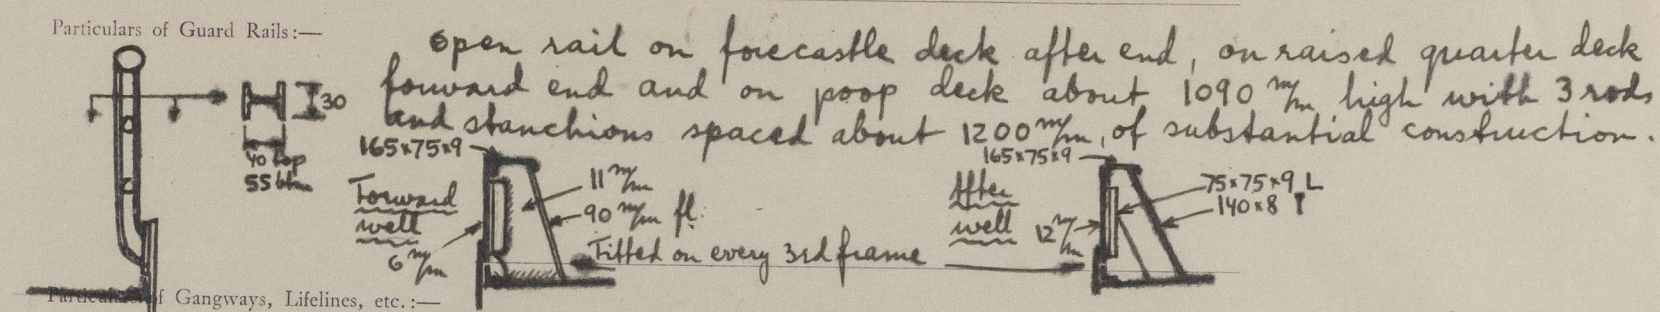 Particulars of Guard Rails:—
open rail on forecastle deck after end, on raised quarter deck
forward end and on poop deck about 1090 m/m high with 3 rods
and stanchions spaced about 1200 m/m, of substantial construction.
30
40 top
55 btm
165x75x9
Forward
well
6 m/m
11 m/m
90 m/m fl.
Fitted on every 3rd frame
165x75x9
After
well
12 m/m
75x75x9 L
140x8 T
Particulars of Gangways, Lifelines, etc.:—